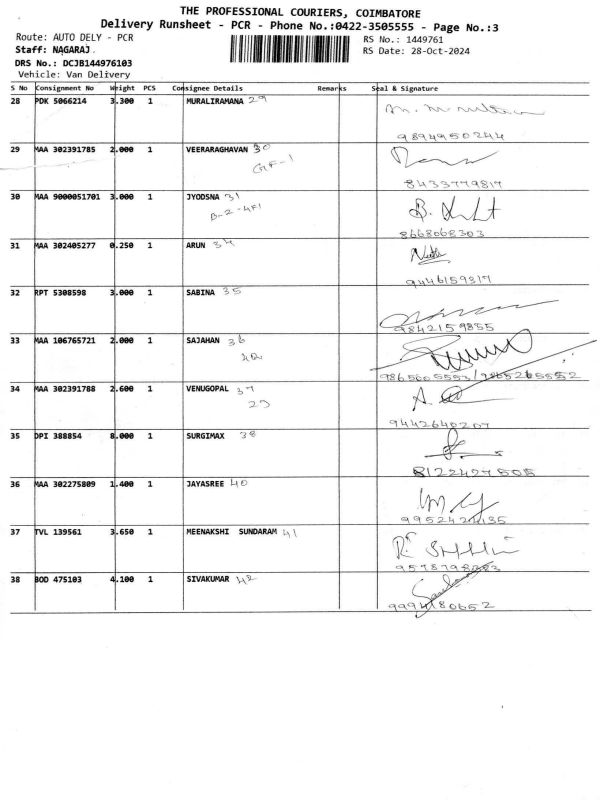 THE PROFESSIONAL COURIERS, COIMBATORE
Delivery Runsheet - PCR - Phone No.:0422-3505555 - Page No.:3
Route: AUTO DELY - PCR RS No.: 1449761
Staff: NAGARAJ RS Date: 28-Oct-2024
DRS No.: DCJB144976103
Vehicle: Van Delivery
S No Consignment No Weight PCS Consignee Details Remarks Seal & Signature
28 PDK 5066214 3.300 1 MURALIRAMANA 29
9894950244
29 MAA 302391785 2.000 1 VEERARAGHAVAN 30
GF-1
8433779817
30 MAA 9000051701 3.000 1 JYODSNA 31
B-2-4F1
8668068303
31 MAA 302405277 0.250 1 ARUN 34
9446159317
32 RPT 5308598 3.000 1 SABINA 35
9842159855
33 MAA 106765721 2.000 1 SAJAHAN 36
9865605553/9865265552
34 MAA 302391788 2.600 1 VENUGOPAL 37
23
9442640207
35 DPI 388854 8.000 1 SURGIMAX 38
8122427505
36 MAA 302275809 1.400 1 JAYASREE 40
37 TVL 139561 3.650 1 MEENAKSHI SUNDARAM 41
38 BOD 475103 4.100 1 SIVAKUMAR 42
9994180652